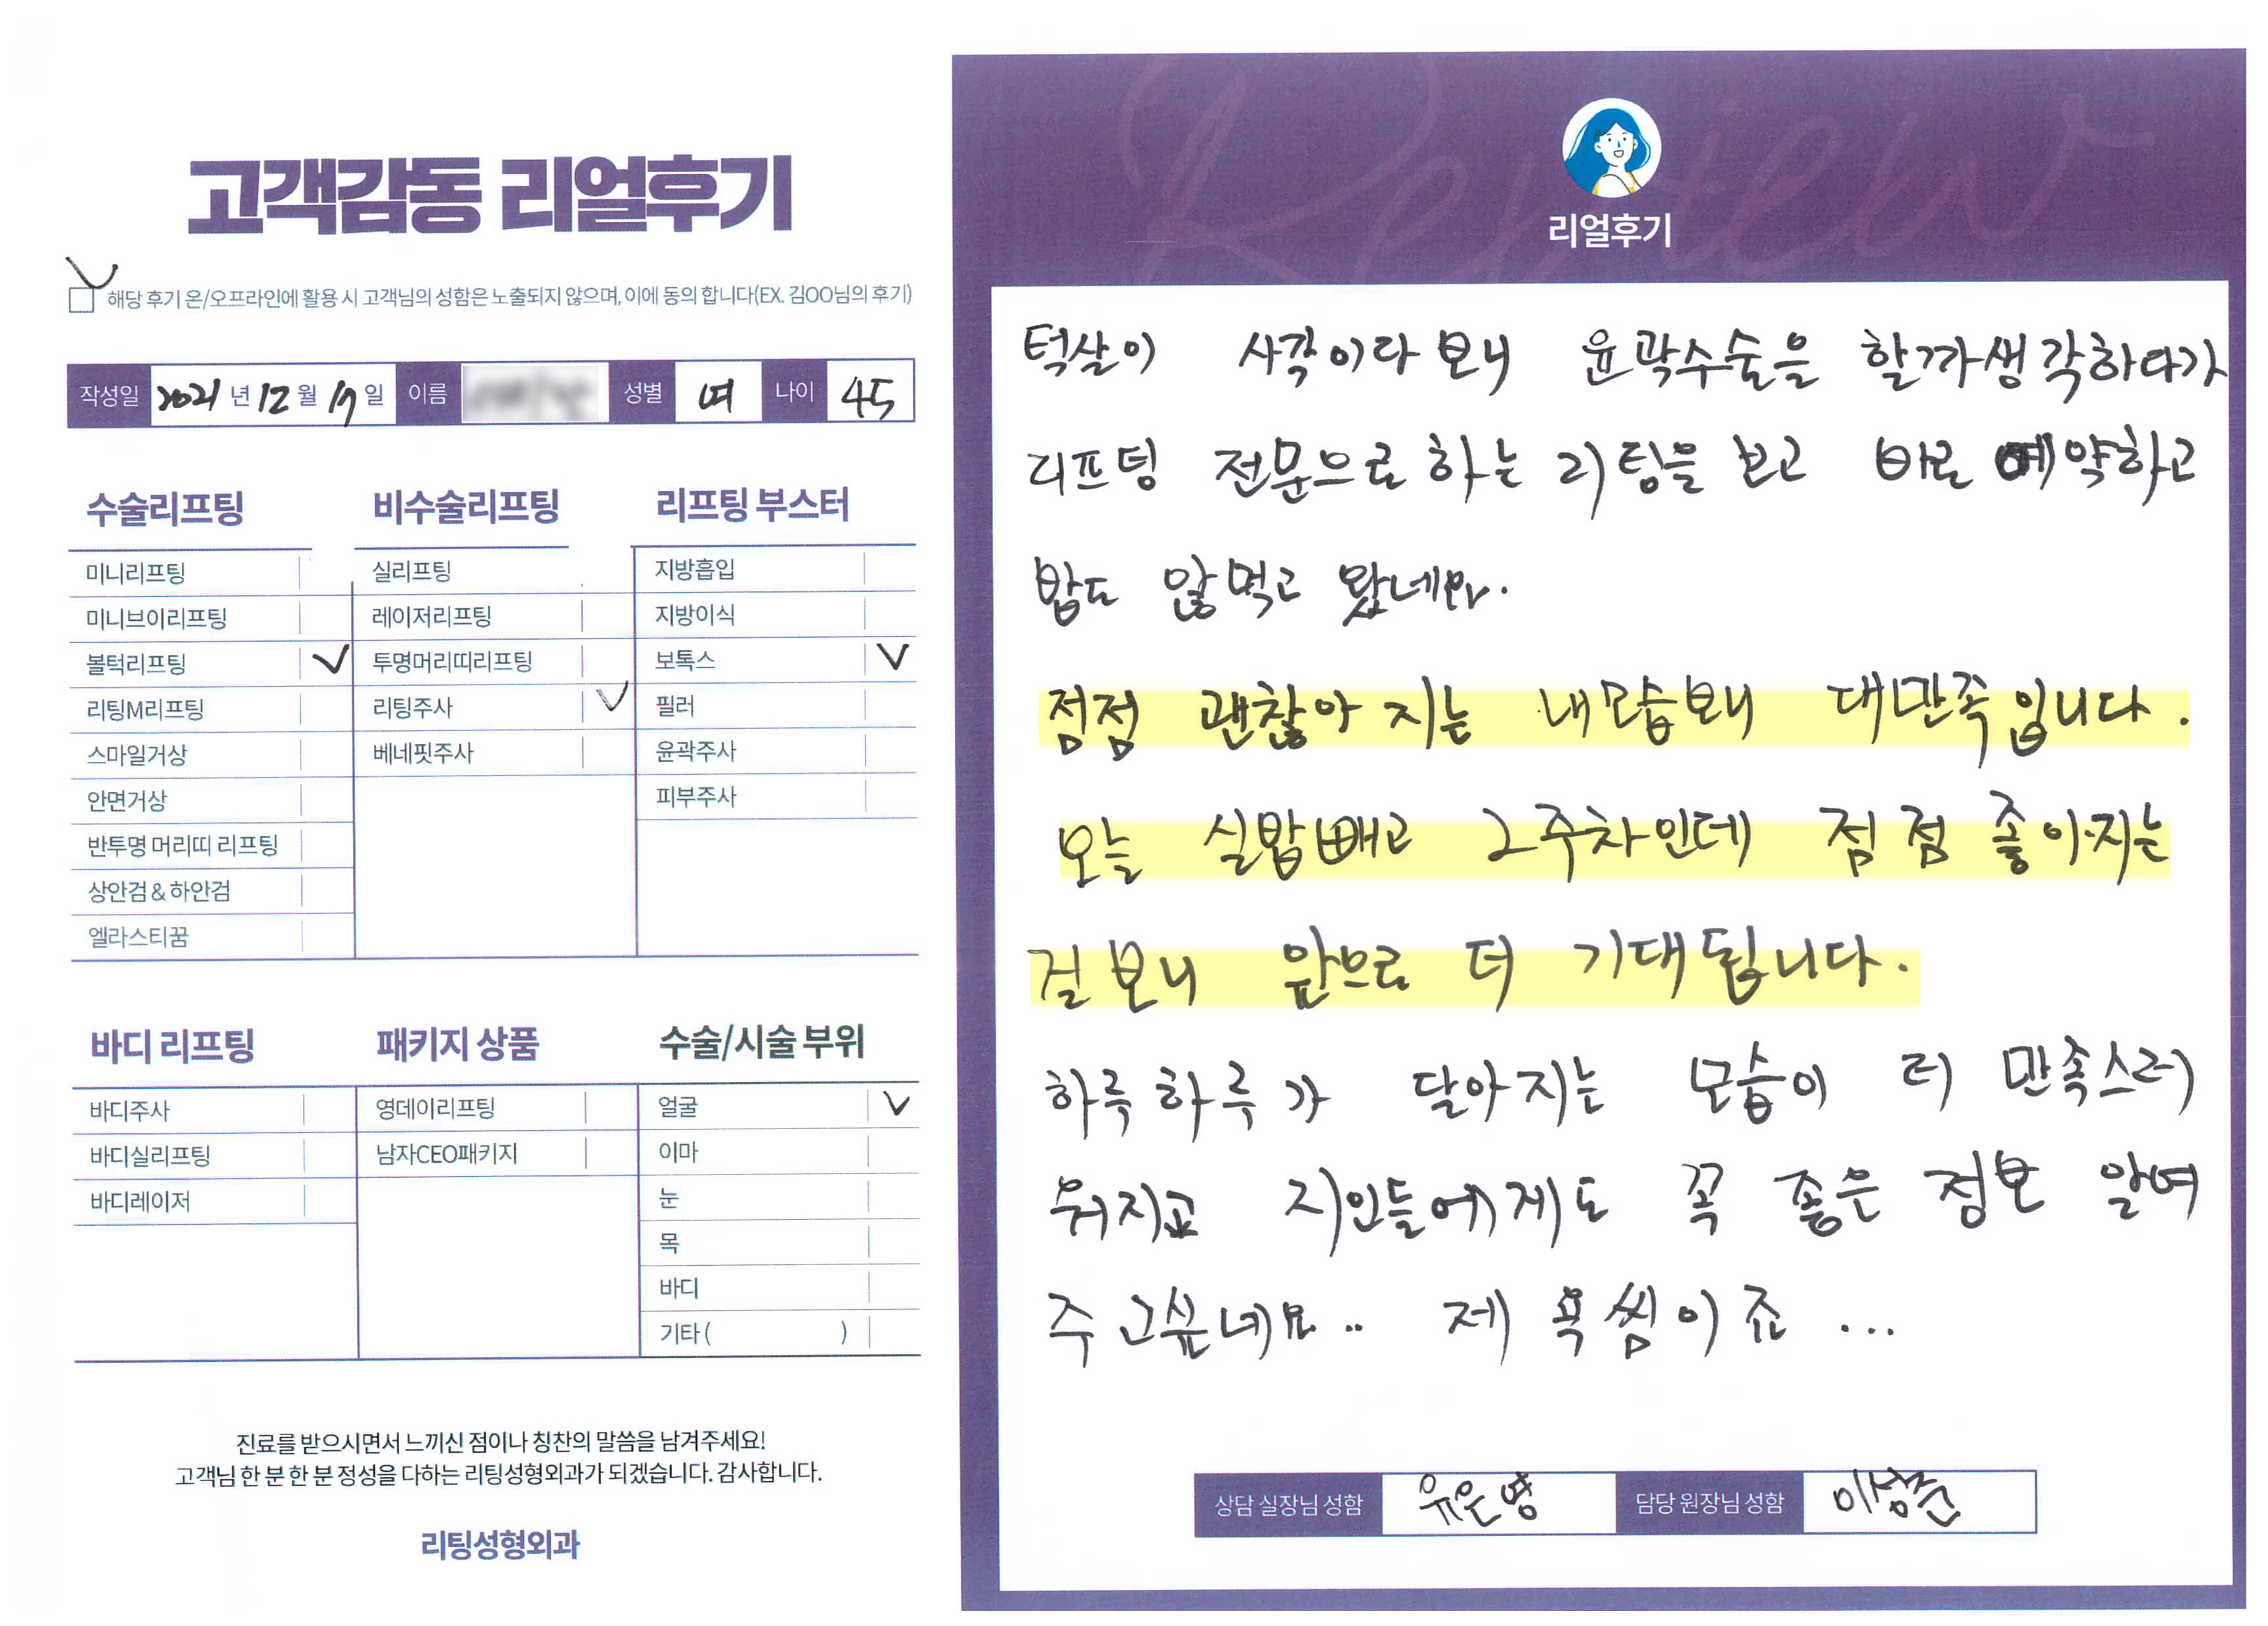 고객감동 리얼후기
해당 후기 온/오프라인에 활용 시 고객님의 성함은 노출되지 않으며, 이에 동의 합니다(EX. 김OO님의 후기)
작성일 2021 년 12 월 19 일 이름 성별 여 나이 45
수술리프팅
미니리프팅
미니브이리프팅
볼턱리프팅
리팅M리프팅
스마일거상
안면거상
반투명 머리띠 리프팅
상안검 & 하안검
엘라스티꿈
비수술리프팅
실리프팅
레이저리프팅
투명머리띠리프팅
리팅주사
베네핏주사
리프팅 부스터
지방흡입
지방이식
보톡스
필러
윤곽주사
피부주사
바디 리프팅
바디주사
바디실리프팅
바디레이저
패키지 상품
영데이리프팅
남자CEO패키지
수술/시술 부위
얼굴
이마
눈
목
바디
기타 ( )
진료를 받으시면서 느끼신 점이나 칭찬의 말씀을 남겨주세요!
고객님 한 분 한 분 정성을 다하는 리팅성형외과가 되겠습니다. 감사합니다.
리팅성형외과
Review
리얼후기
턱살이 사각이라 보니 윤곽수술을 할까생각하다가
리프팅 전문으로 하는 리팅을 보고 바로 예약하고
밥도 않먹고 왔네요.
점점 괜찮아 지는 내모습보니 대만족입니다.
오늘 실밥빼고 2주차인데 점점 좋아지는
걸 보니 앞으로 더 기대됩니다.
하루하루가 달아지는 모습이 더 만족스러
워지고 지인들에게도 꼭 좋은 정보 알려
주고싶네요.. 제 욕씸이죠 ...
상담 실장님 성함 유은영 담당 원장님 성함 이성준